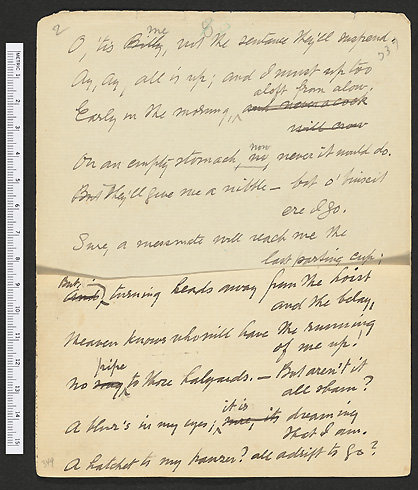 2
O, 'tis Billy, not the sentence they'll suspend.
me
Ay, Ay, all is up; and I must up too
Early in the morning, aloft from alow.
and never a cock
will crow
On an empty stomach, now, never it would do.
no
But They'll give me a nibble — bit o' biscuit
ere I go.
Sure, a messmate will reach me the
last parting cup;
But, and turning heads away from the hoist
and the belay,
Heaven knows who will have the running
of me up!
pipe
No to those halyards. — But aren't it
all sham?
A blur's in my eyes; it is dreaming
that I am.
A hatchet to my hawser? all adrift to go?
344